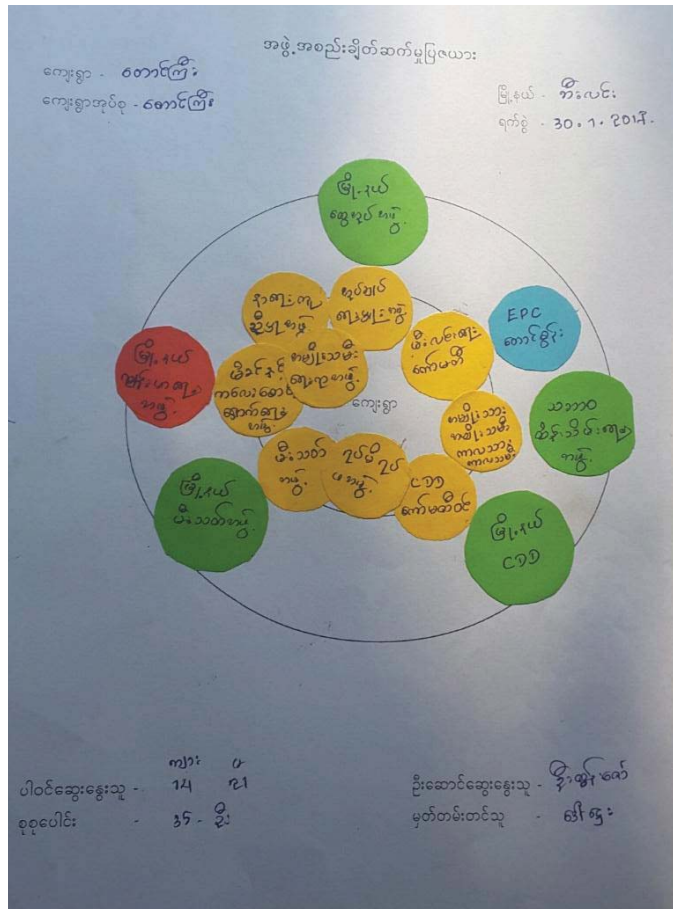 အဖွဲ့အစည်းချိတ်ဆက်မှုပြဇယား
ကျေးရွာ - တောင်ကြီး
ကျေးရွာအုပ်စု - တောင်ကြီး
မြို့နယ် - ဘီးလင်း
ရက်စွဲ - 30.1.2018.
မြို့နယ်
အဖွဲ့
နာရေးကူ
ညီမှုအဖွဲ့
အုပ်ချုပ်
ရေးမှူးအဖွဲ့
မီးလင်းရေး
ကော်မတီ
EPC
တောင်စွန်း
မြို့နယ်
ကျန်းမာရေး
အဖွဲ့
မိခင်နှင့်
ကလေးစောင့်
ရှောက်ရေး
အဖွဲ့
အမျိုးသမီး
ရေးရာအဖွဲ့
ကျေးရွာ
အမျိုးသား
အမျိုးသမီး
ကာလသား
ကာလသမီး
သဘာဝ
ထိန်းသိမ်းရေး
အဖွဲ့
မြို့နယ်
မီးသတ်အဖွဲ့
မီးသတ်
အဖွဲ့
ရပ်မိရပ်
ဖအဖွဲ့
CDD
ကော်မတီဝင်
မြို့နယ်
CDD
ကျား မ
ပါဝင်ဆွေးနွေးသူ - 14 21
စုစုပေါင်း - 35 - ဦး
ဦးဆောင်ဆွေးနွေးသူ -
မှတ်တမ်းတင်သူ - ဒေါ်ဌေး